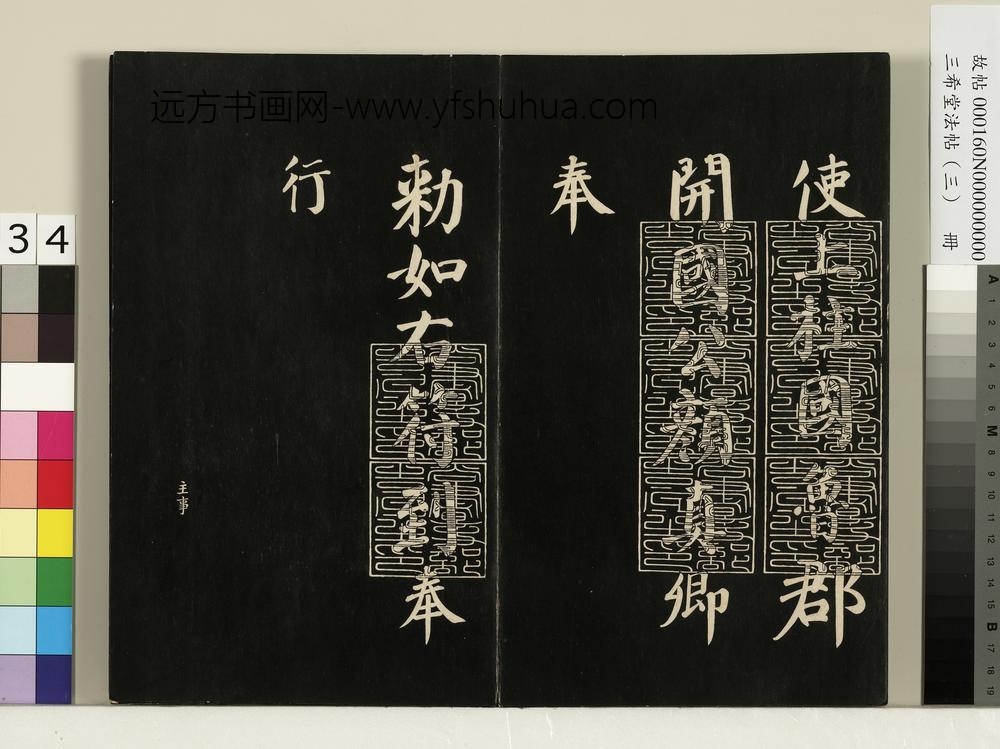 使上柱國魯郡
開國公顏真卿
奉
勅如右符到奉
行
主事
远方书画网-www.yfshuhua.com
故帖 000160N000000000
三希堂法帖（三） 冊
3 4
A 1 2 3 4 5 6 M 8 9 10 11 12 13 14 15 B 17 18 19